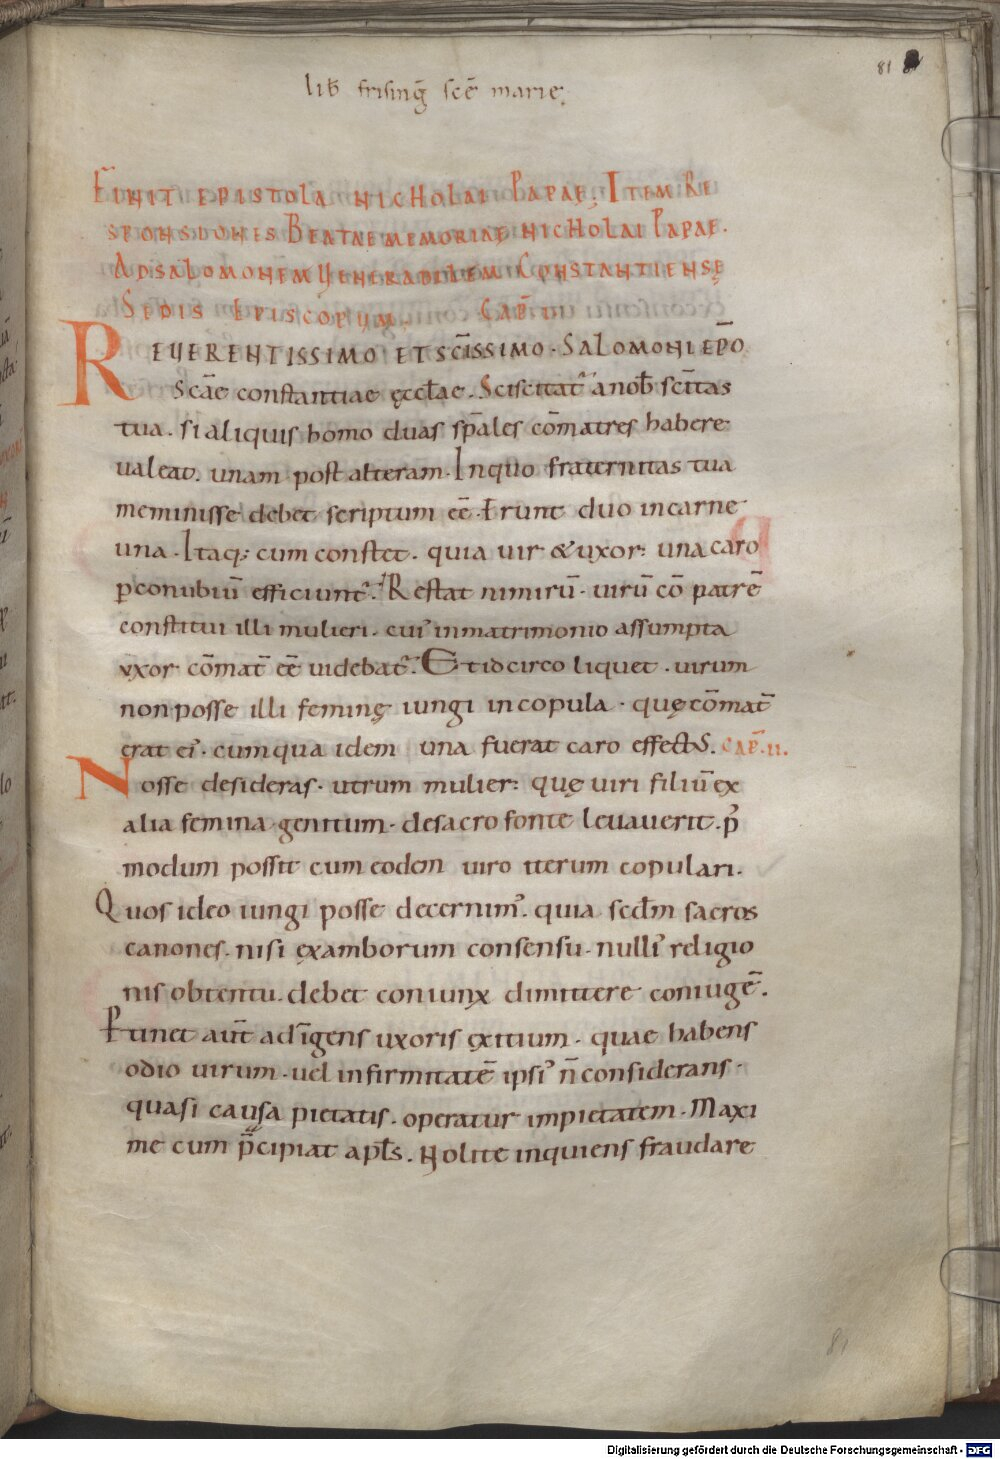 81
lib̄ frisinḡ scē marie.
FINIT EPISTOLA NICHOLAI PAPAE; ITEM RE
SPONSIONES BEATAE MEMORIAE NICHOLAI PAPAE.
AD SALOMONEM VENERABILEM CONSTANTIENSĘ
SEDIS EPISCOPUM. CAP̄ I
REVERENTISSIMO ET SCISSIMO. SALOMONI EP̄O
Scāe constantiae ęccłae. Sciscitat᷒ a nob̄ scītas
tua. si aliquis homo duas sp̄ales cōmatres habere
ualeat. unam post alteram. In quo fraternitas tua
meminisse debet scriptum eē. Erunt duo in carne
una. Itaq; cum constet. quia uir & uxor: una caro
ꝑ conubiū efficiunt᷒. Restat nimirū. uirū cō patrē
constitui illi mulieri. cui᷒ in matrimonio assumpta
uxor cōmat̄ eē uidebat᷒. Et idcirco liquet. uirum
non posse illi feminę iungi in copula. quę cōmat̄
erat ei᷒. cum qua idem una fuerat caro effectus. CAP̄. II.
Nosse desideras. utrum mulier: quę uiri filiū ex
alia femina genitum. de sacro fonte leuauerit. p᷒
modum possit cum eodem uiro iterum copulari.
Quos ideo iungi posse decernim᷒. quia scđm sacros
canones. nisi ex amborum consensu. nulli᷒ religio
nis obtentu. debet coniunx dimittere coniugē.
Ꝑtinet aūt ad īgens uxoris exitium. quae habens
odio uirum. uel infirmitatē ipsi᷒ n̄ considerans.
quasi causa pietatis. operatur impietatem. Maxi
me cum p̄cipiat apłs. Nolite inquiens fraudare
81
Digitalisierung gefördert durch die Deutsche Forschungsgemeinschaft - DFG